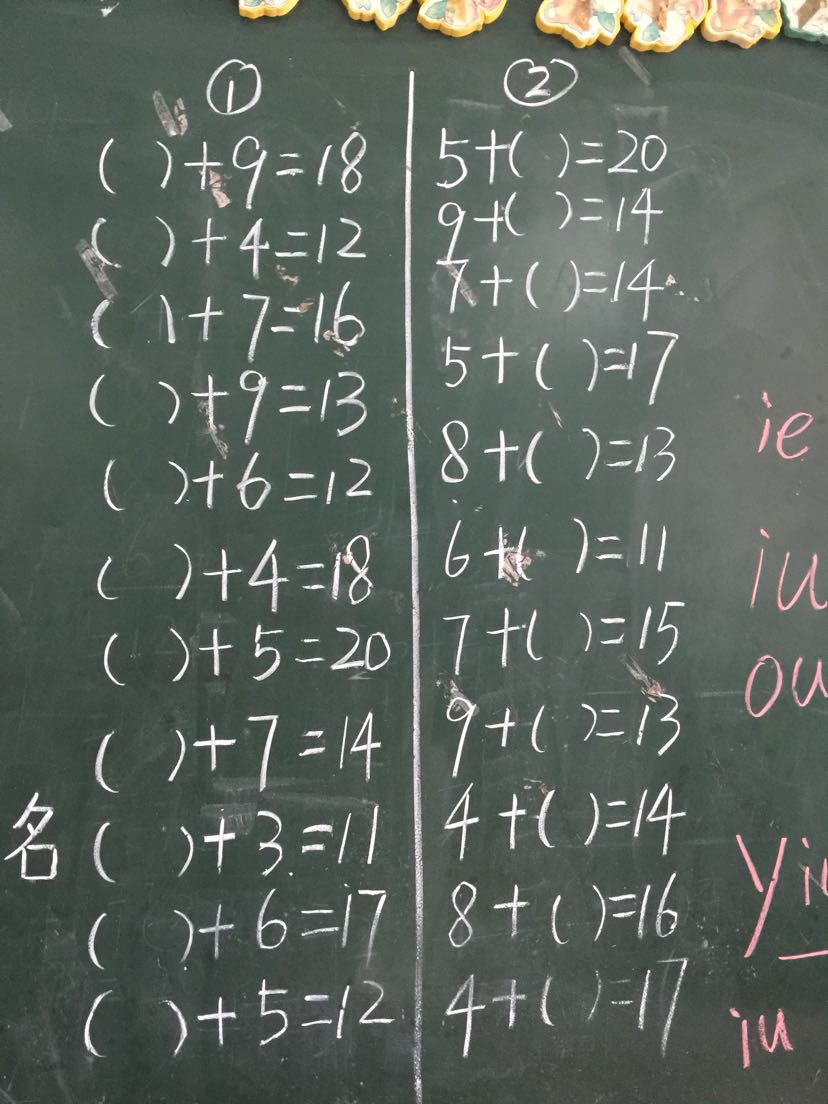 ①
( )+9=18
( )+4=12
( )+7=16
( )+9=13
( )+6=12
( )+4=18
( )+5=20
( )+7=14
( )+3=11
( )+6=17
( )+5=12
②
5+( )=20
9+( )=14
7+( )=14
5+( )=17
8+( )=13
6+( )=11
7+( )=15
9+( )=13
4+( )=14
8+( )=16
4+( )=17
名
ie
iu
ou
iu